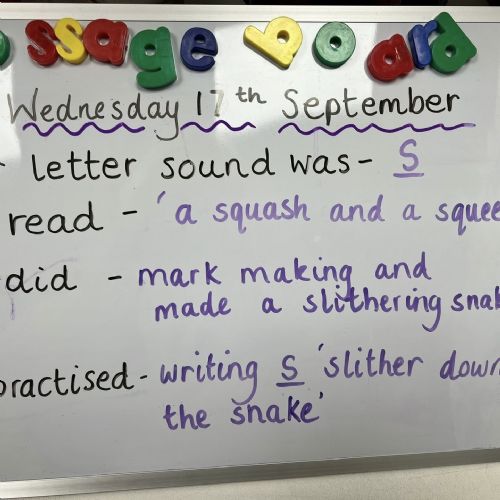 ssage board
Wednesday 17th September
letter sound was - s
read - 'a squash and a squee
did - mark making and
made a slithering snak
practised - writing s 'slither down
the snake'